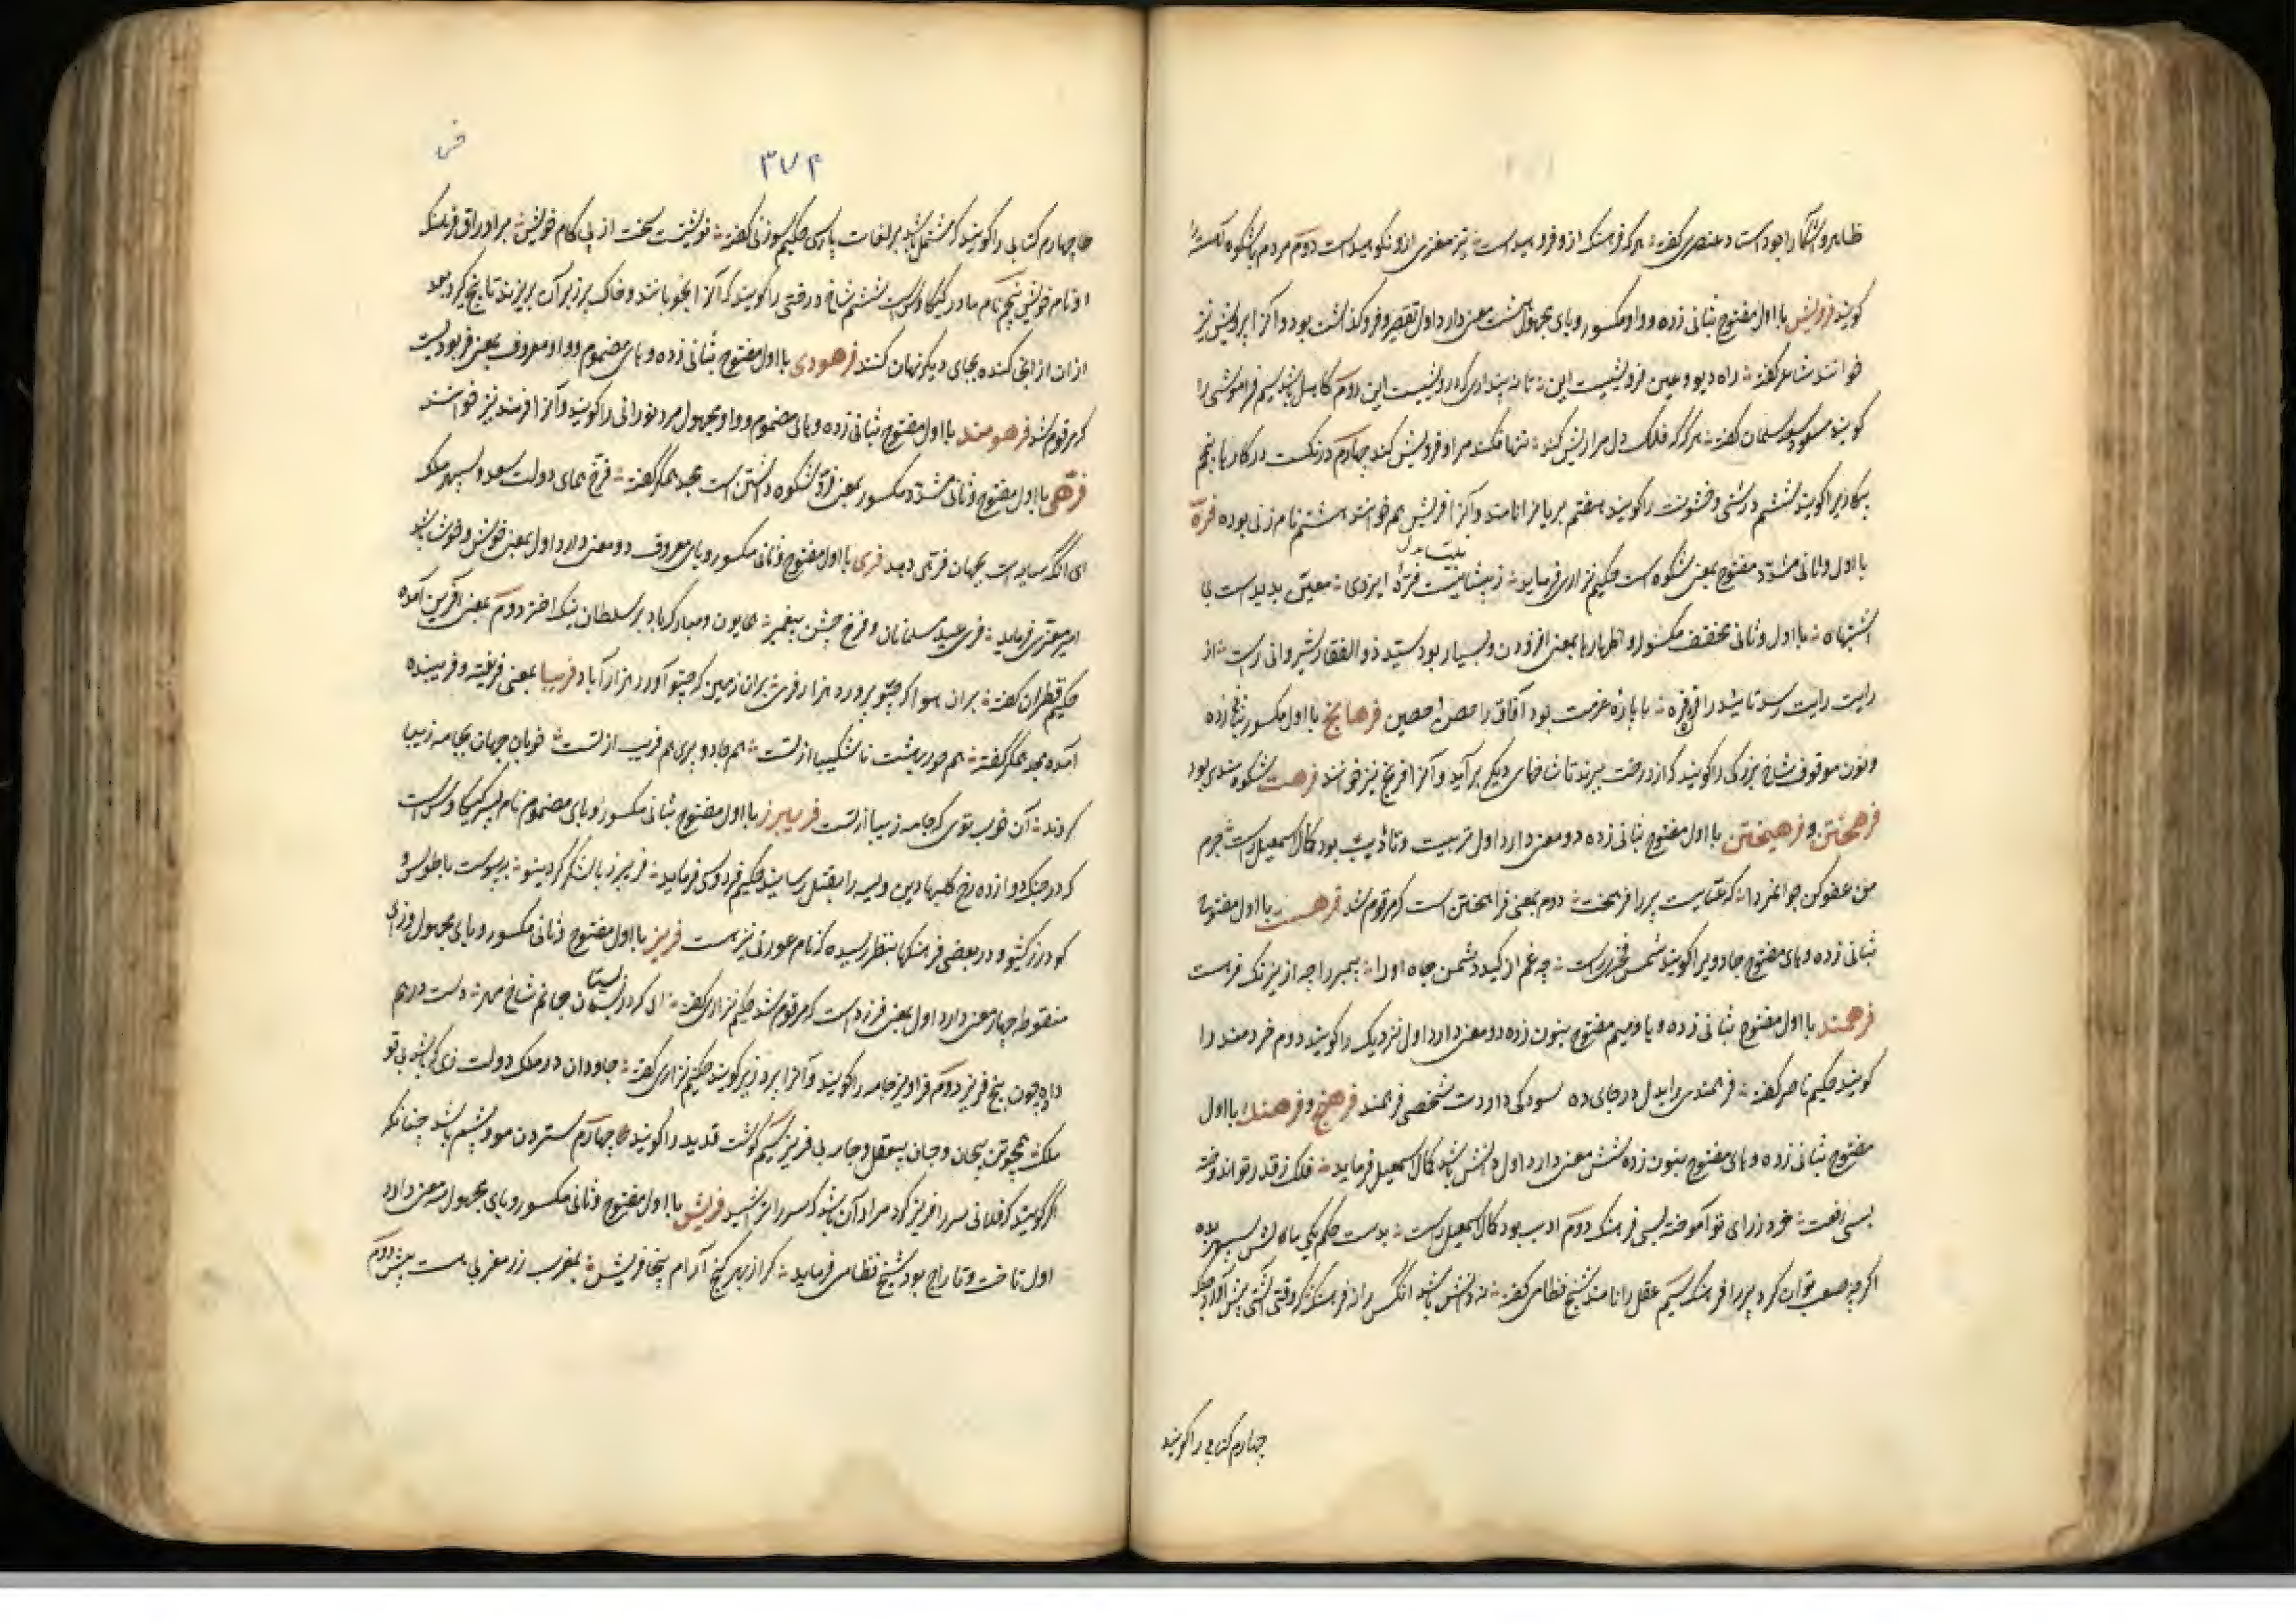 کویند فرویش با اول مفتوح بثانی زده و واو مکسور و یای مجهول هشت معنی دارد اول تقصیر و فروکذاشت بود و آنرا پرویش نیز
خوانند شاعر کفته راه دیو و عین فرویشیست این تا نه پنداری که درویشیست این دوم کاهل باشد سیم فراموشی را
کویند مسعود سعد سلمان کفته هر کز فلک دل مرا ریش کند تنها فکند مرا و فرویش کند چهارم درنکست در کارها پنجم
بیکار را کویند ششم درشتی و خشونت را کویند هفتم بریان را نامند و آنرا فریش هم خوانند هشتم نام زنی بوده فره
با اول و ثانی مشدد مفتوح بمعنی شکوه است حکیم نزاری فرماید ز پیشانیت فرهٔ ایزدی معین پدیدست بی
اشتباه با اول و ثانی مخفف مکسور و اظهار ها بمعنی افزودن و بسیار بود سید ذوالفقار شیروانی راست از
رایت رایت رسد تایید را فره با باره عزمت بود آفاق را حصن حصین فرهانج با اول مکسور بثانی زده
و نون موقوف شاخ بزرکی را کویند که از درخت ببرند تا شاخهای دیکر برآید و آنرا فرنج نیز خوانند فرهت شکوهمندی بود
فرهختن و فرهیختن با اول مفتوح بثانی زده دو معنی دارد اول تربیت و تادیب بود کمال اسمعیل راست جرم
من عفو کن جوانمردا که عتابت مرا فرهخت دوم بمعنی فراهختن است که مرقوم شد فرهست با اول مفتوح
بثانی زده و های مفتوح جادویرا کویند شمس فخری راست چه غم از کید دشمن جاه او را پیمبر را چه از نیرنک فرهست
فرهمند با اول مفتوح بثانی زده و ها و میم مفتوح بنون زده دو معنی دارد اول نزدیک را کویند دوم خردمند را
کویند حکیم ناصر کفته فرهمندی را بدل در جای ده سود کی داردت شخصی فرهمند فرهنج و فرهنک با اول
مفتوح بثانی زده و های مفتوح بنون زده شش معنی دارد اول دانش باشد کمال اسمعیل فرماید فلک ز قدر تو اندوخته
بسی رفعت خرد ز رای تو آموخته بسی فرهنک دوم ادب بود کمال اسمعیل راست
اکرچه صعب توان کرد پیر را فرهنک سیم عقل را نامند شیخ نظامی کفته نه دانش باشد آنکس را نه فرهنک که وقت آشتی پیش آورد جنک
چهارم کتابی را کویند
۳۷۴
چهارم کتابی را کویند که مشتمل باشد بر لغات پارسی حکیم سوزنی کفته
او نام خویش پنجم نام مادر کیکاوس است ششم شاخ درختی را کویند که آنرا بخوابانند و خاک بر زبر آن بریزند تا بیخ کیرد بعد
ازان از انجا کنده بجای دیکر نهال کنند فرهودی با اول مفتوح بثانی زده و های مضموم و واو معروف بمعنی فربودیست
که مرقوم شد فرهومند با اول مفتوح بثانی زده و های مضموم و واو مجهول مرد نورانی را کویند و آنرا فرمند نیز خوانند
فرهی با اول مفتوح و ثانی مشدد مکسور بمعنی فر و شکوه داشتن است مجد همکر کفته فرخ همای دولت سعد و سپهر ملک
ای آنکه سایه ات بجهان فرهی دهد فری با اول مفتوح و ثانی مکسور و یای معروف دو معنی دارد اول بمعنی خوش و خوب باشد
امیر معزی فرماید فری عید مسلمانان و فرخ جشن پیغمبر همایون و مبارک باد بر سلطان نیک اختر دوم بمعنی آفرین آمده
حکیم قطران کفته بران هوا که چنو پرورد هزار فری بران زمین که چنو آورد هزار آباد فریبا بمعنی فریفته و فریبنده
آمده مجد همکر کفته هم حور بهشت ناشکیبا از تست هم جادو و پری هم فریب از تست خوبان جهان بجامه زیبا
کردند آن خوب توی که جامه زیبا از تست فریبرز با اول مفتوح بثانی مکسور و بای مضموم نام پسر کیکاوس است
که در جنک دوازده رخ کلباد بن ویسه را بقتل رسانید حکیم فردوسی فرماید
کودرز کشواد و در بعضی فرهنکها بنظر رسیده که نام عورتی نیز هست فریز با اول مفتوح و ثانی مکسور و یای مجهول و زای
منقوطه چهار معنی دارد اول بمعنی فرزد است که مرقوم شد حکیم نزاری کفته ای که در بستان جانم شاخ مهر دست در هم
داده چون بیخ فریز دوم فراویز جامه را کویند و آنرا پروز نیز کویند حکیم نزاری کفته جاودان در ملک دولت زی که باشد بی تو
ملک همچو تن بیجان و جان بی عقل و جامه بی فریز سیم کوشت قدید را کویند چهارم ستردن موی و پشم باشد چنانکه
اکر کویند که فلانی سر را فریز کرد مراد آن باشد که سر را تراشید فریش با اول مفتوح و ثانی مکسور و یای مجهول سه معنی دارد
اول تاخت و تاراج بود شیخ نظامی فرماید که از بهر کنج آرام بخا فریش بمغرب زر مغربی هست بیش دوم